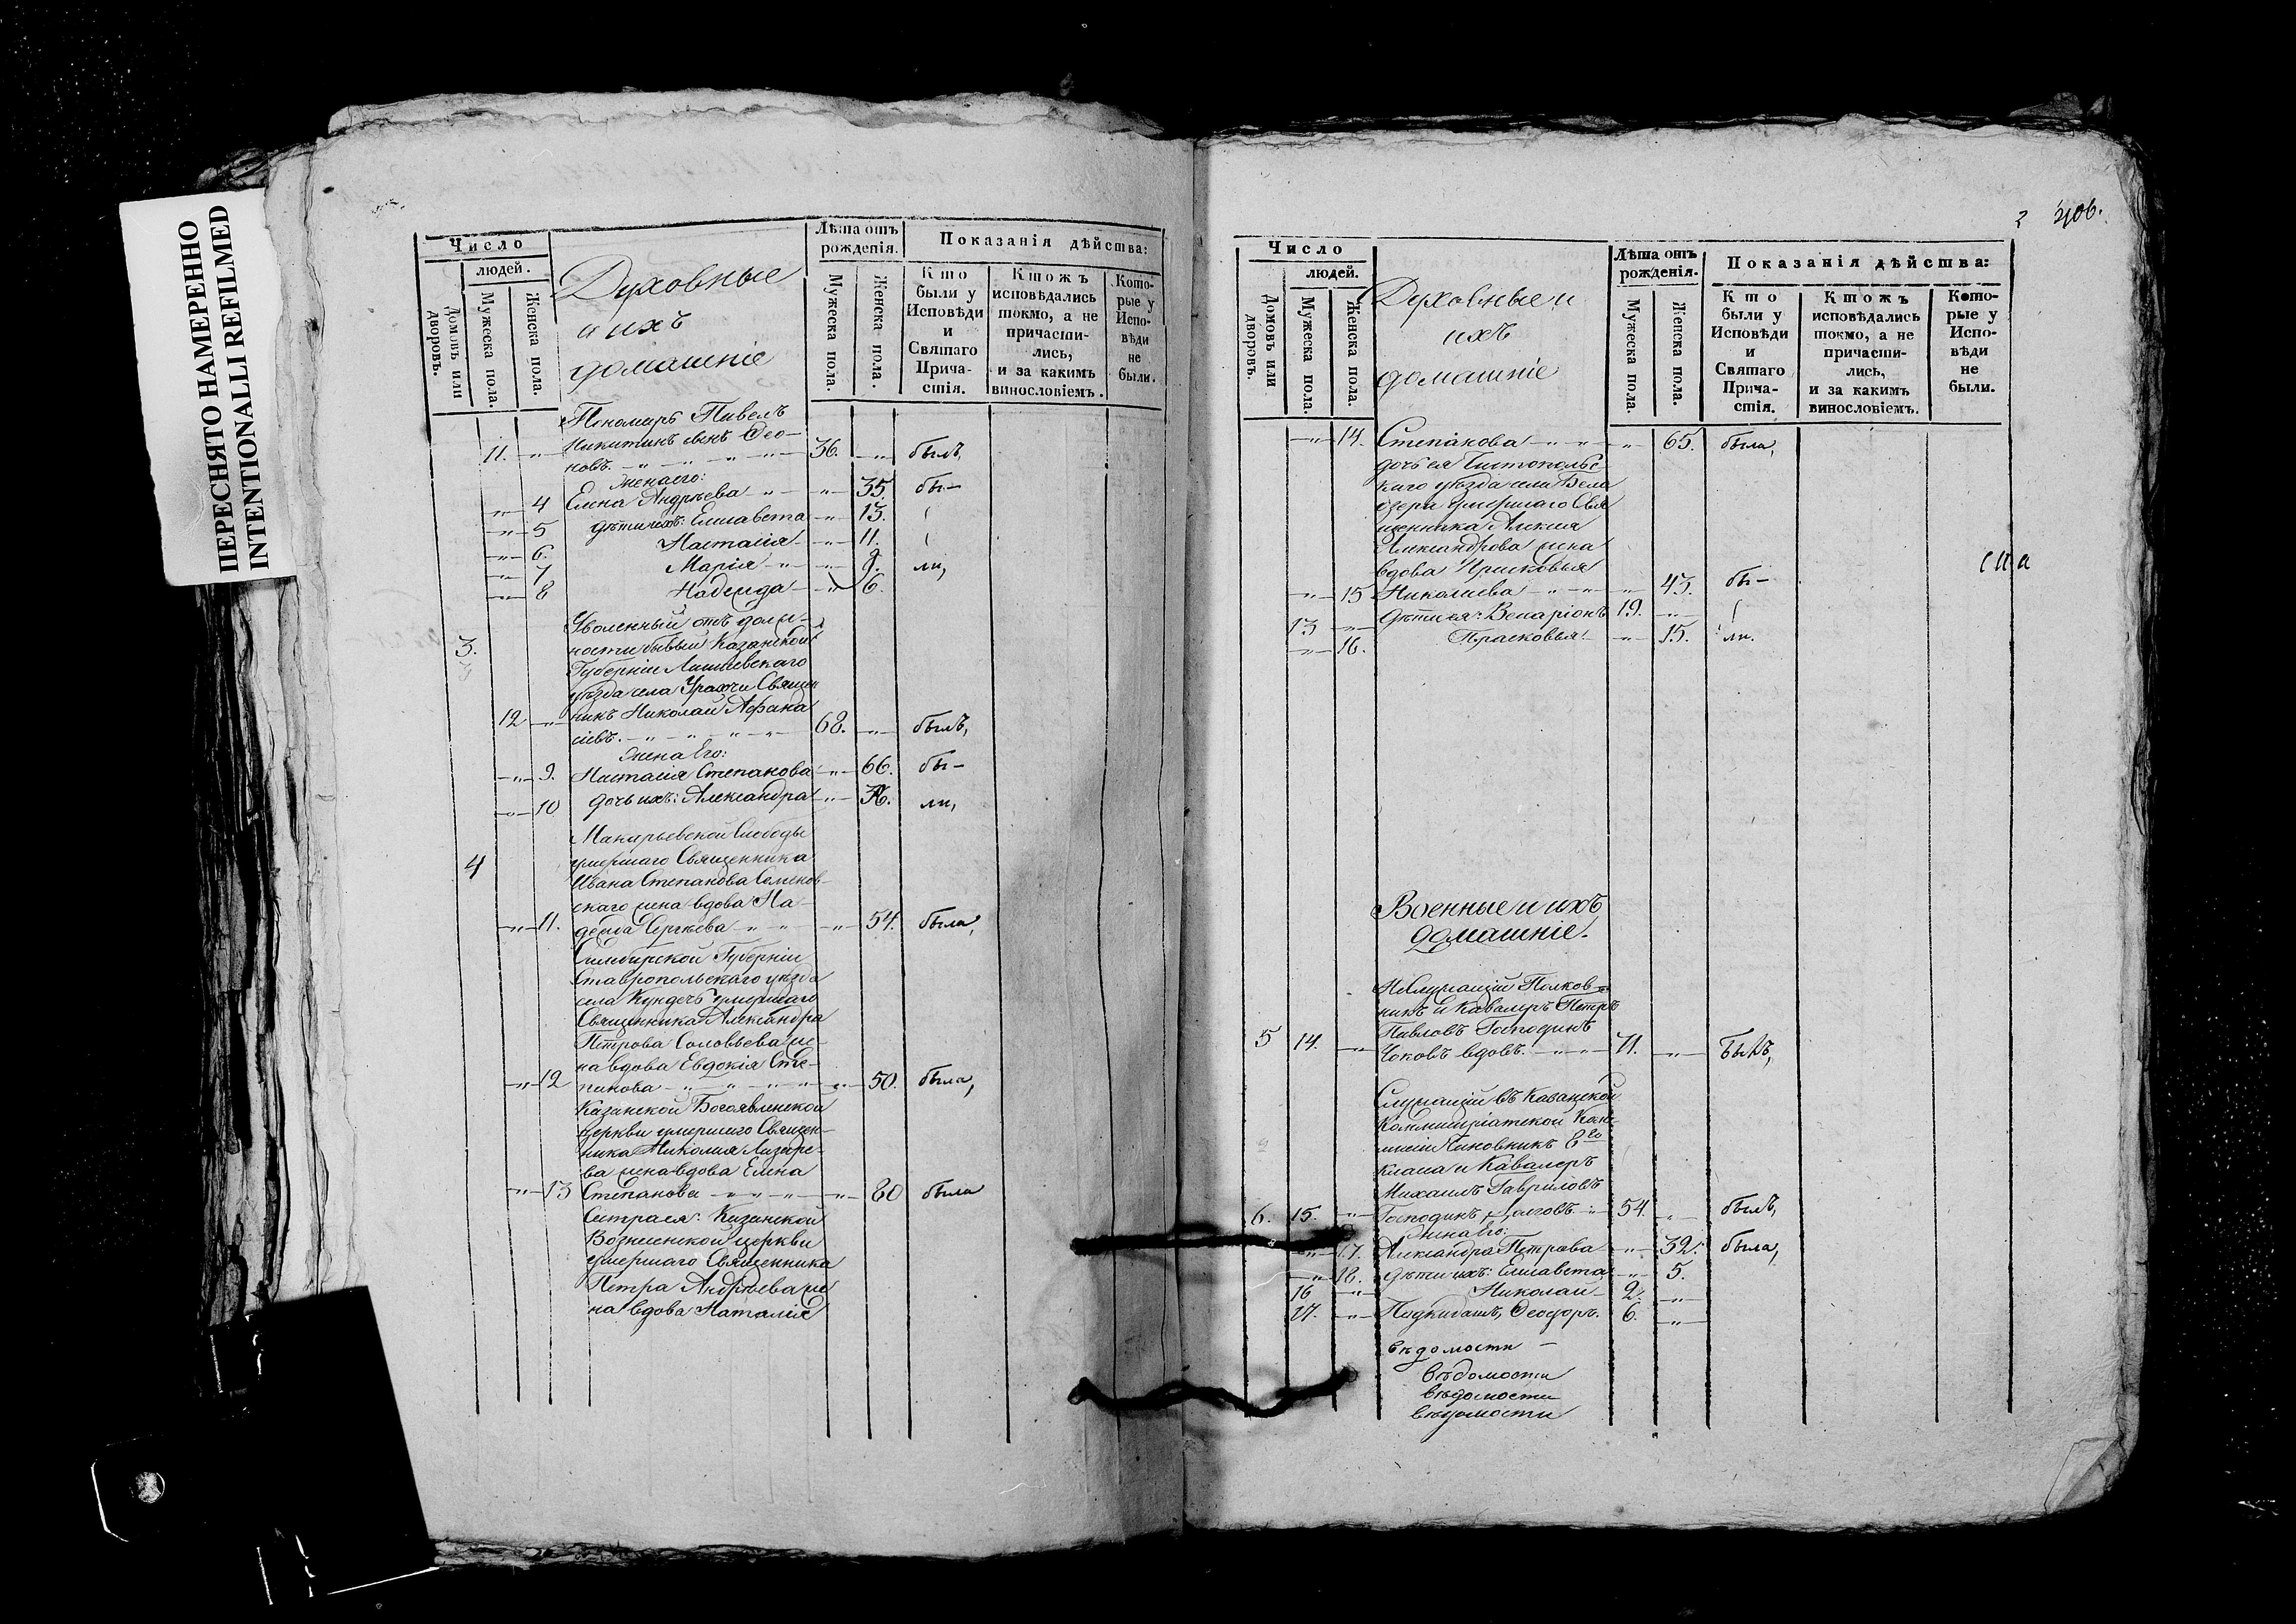 ПЕРЕСНЯТО НАМЕРЕННО
INTENTIONALLI REFILMED
Число
людей.
Домовъ или дворовъ.
Мужеска пола.
Женска пола.
Духовные
и ихъ
домашніе
Лѣта отъ рожденія.
Мужеска пола.
Женска пола.
Показанія дѣйства:
Кто были у Исповѣди и Святаго Прича-стія.
Ктожъ исповѣдались токмо, а не причасти-лись, и за какимъ винословіемъ.
Кото-рые у Испо-вѣди не были.
Пономарь Павелъ
11. Никитинъ сынъ Ѳео-
новъ. 36. былъ,
жена его:
4 Елена Андреева 35. бы-
5 дѣти ихъ: Елисавета 13.
6. Настасія 11.
7 Марія 9. ли,
8 Надежда 6.
Уволенный отъ долж-
3. ности бывый Казанской
Губерніи Лаишевскаго
уѣзда села Урахчи Священ
12 никъ Николай Афана
сіевъ. 68. былъ,
жена Его:
9. Настасія Степанова 66. бы-
10 дочь ихъ: Александра 36. ли,
Макарьевской Слободы
4 умершаго Священника
Ивана Степанова Семенов-
скаго жена вдова На-
11. дежда Сергѣева 54. была,
Симбирской Губерніи
Ставропольскаго уѣзда
села умершаго
Священника Александра
Петрова Соловьева же-
на вдова Евдокія Сте-
12 панова 50. была,
Казанской Богоявленской
церкви умершаго Священ-
ника Николая Лазаре-
ва жена вдова Елена
13 Степанова 80 была
Сестра ея: Казанской
Вознесенской церкви
умершаго Священника
Петра Андреева же
на вдова Наталія
2 406.
Число
людей.
Домовъ или дворовъ.
Мужеска пола.
Женска пола.
Духовные и
ихъ
домашніе
Лѣта отъ рожденія.
Мужеска пола.
Женска пола.
Показанія дѣйства:
Кто были у Исповѣди и Святаго Прича-стія.
Ктожъ исповѣдались токмо, а не причасти-лись, и за какимъ винословіемъ.
Кото-рые у Испо-вѣди не были.
14. Степанова 65. была,
дочь ея Чистопольс-
каго уѣзда села Бела
озера умершаго Свя
щенника Алексія
Александрова жена
вдова Прасковья
15 Николаева 43. бы-
13 дѣти ея: Веніаріонъ 19.
16. Прасковья 15. ли.
Военные и ихъ
домашніе.
Неслужащій Полков-
никъ и Кавалеръ Петръ
Павловъ Господинъ
5 14. вдовъ. 71. былъ,
Служащій въ Казанской
Коммисріатской Ком-
мисіи Чиновникъ 8го
класа и Кавалеръ
Михаилъ Гавриловъ
6. 15. Господинъ 54. былъ,
жена Его:
17. Александра Петрова 32. была,
18. дѣти ихъ: Елисавета 5.
16 Николай 2.
17. Подкидышъ, Ѳеодоръ. 6.
вѣдомости
вѣдомости
вѣдомости
вѣдомости